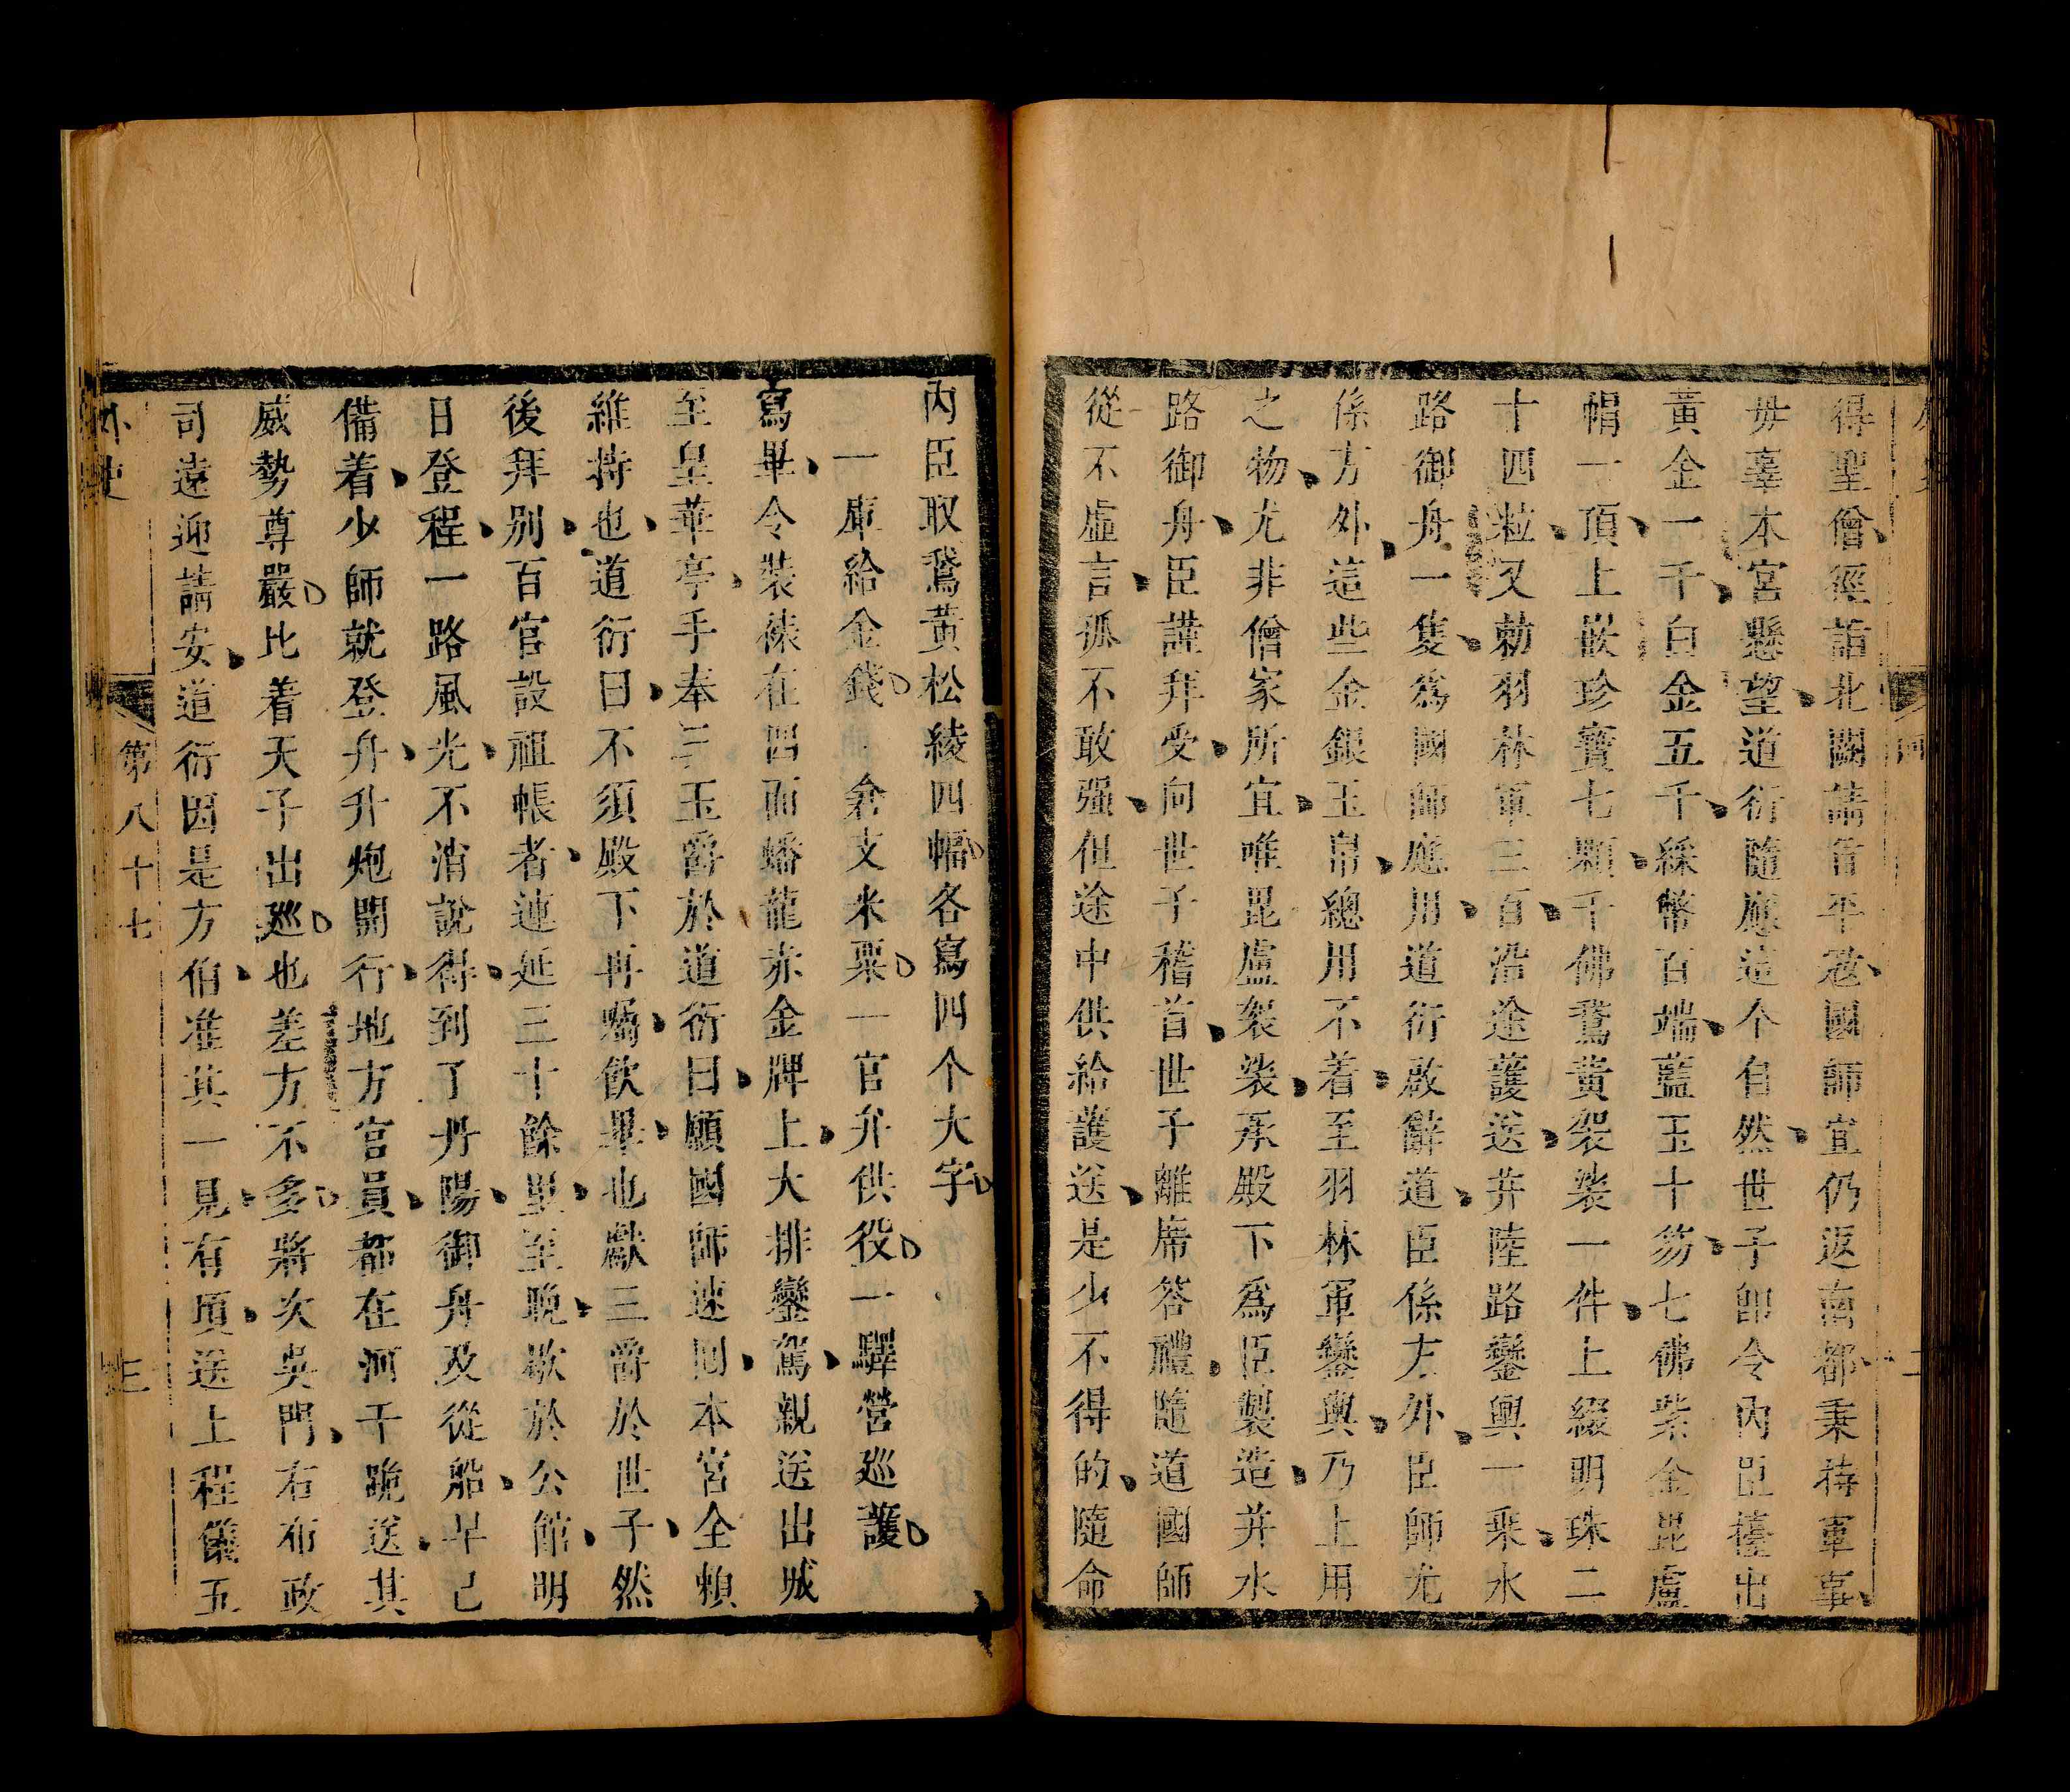 得聖僧、經詣北闕請旨平冦、國師宜仍返南都秉持軍事、
毋辜本宮懸望、道衍隨應這个自然、世子卽令內臣擡出
黃金一千、白金五千、綵幣百端、藍玉十笏、七佛紫金毘盧
帽一頂、上嵌珍寶七顆、千佛鵞黃袈裟一件、上綴明珠二
十四粒、又勅羽林軍三百、沿途護送、并陸路鑾輿一乘、水
路御舟一隻、爲國師應用、道衍啟辭道、臣係方外、臣師尤
係方外、這些金銀玉帛、總用不着、至羽林軍鑾輿、乃上用
之物、尤非僧家所宜、唯毘盧袈裟、承殿下爲臣製造、并水
路御舟、臣謹拜受、向世子稽首、世子離席答禮、隨道國師
從不虛言、孤不敢强、但途中供給護送、是少不得的、隨命
內臣取鵞黃松綾四幅各寫四个大字
一庫給金錢 倉支米粟 一官弁供役 一驛營巡護
寫畢、令裝裱在四面蟠龍赤金牌上、大排鑾駕、親送出城
至皇華亭、手奉三玉爵於道衍曰、願國師速回、本宮全賴
維持也、道衍曰、不須殿下再囑、飲畢、也獻三爵於世子、然
後拜別、百官設祖帳者、連延三十餘里、至晚、歇於公館、明
日登程、一路風光、不消說得、到了丹陽、御舟及從船、早已
備着、少師就登舟、升炮開行、地方官員、都在河干跪送、其
威勢尊嚴比着天子出廵也差方不多將次吳門、右布政
司遠迎請安、道衍因是方伯、准其一見、有頃、送上程儀五
外史
第八十七
三